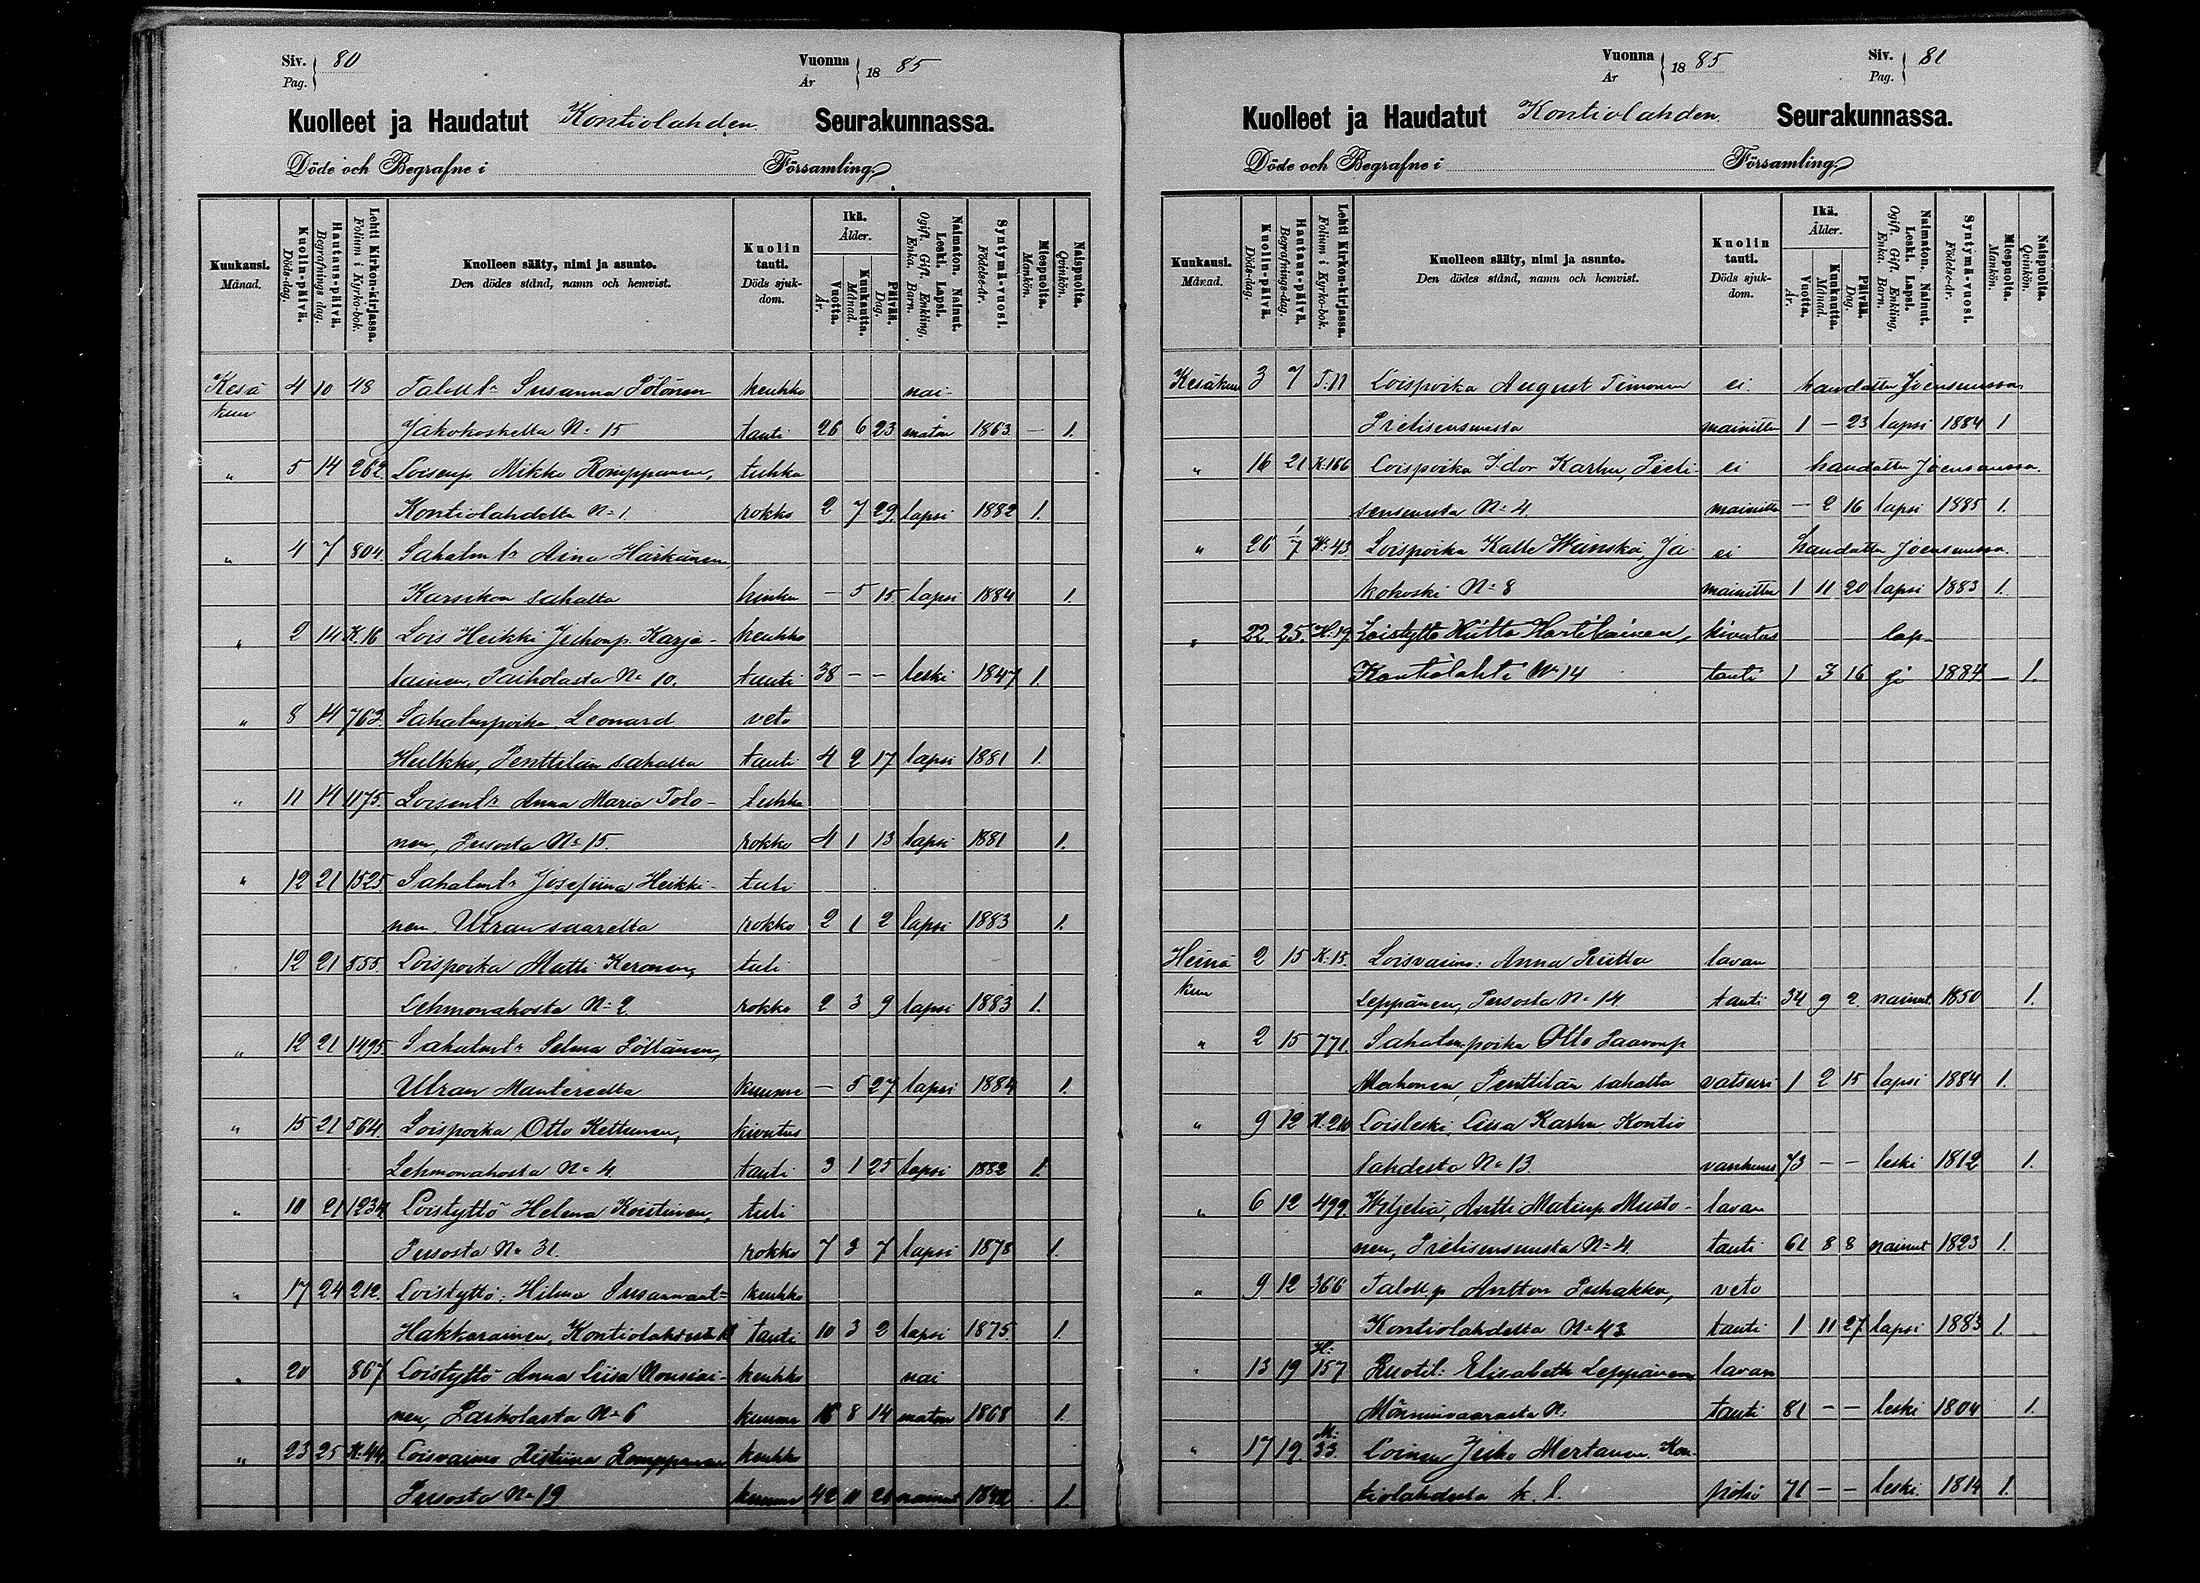 Siv. 80
Pag.
Vuonna 1885
År
Kuolleet ja Haudatut Kontiolahden Seurakunnassa.
Döde och Begrafne i Församling.
Kuukausi. Månad.
Kuolin-päivä. Döds-dag.
Hautaus-päivä. Begrafnings dag.
Lehti Kirkon-kirjassa. Folium i Kyrko-bok.
Kuolleen sääty, nimi ja asunto.
Den dödes stånd, namn och hemvist.
Kuolin tauti. Döds sjukdom.
Ikä. Ålder.
Vuotta. År.
Kuukautta. Månad.
Päivää. Dag.
Naimaton. Nainut. Leski. Lapsi.
Ogift. Gift. Enkling. Enka. Barn.
Syntymä-vuosi. Födelse-år.
Miespuolta. Mankön.
Naispuolta. Qvinkön.
Kesä 4 10 48 Talollr Susanna Pölönen keuhko nai-
kuu Jakokoskelta No 15 tauti 26 6 23 maton 1863 — 1.
" 5 14 262. Loisenp. Mikko Romppanen, tuhka
Kontiolahdelta No 1. rokko 2 7 29. lapsi 1882 1.
" 4 7 804. Sahalmtr Aina Härkänen
Karsikon sahalta hinku — 5 15. lapsi 1884 1.
" 2 14 K.16 Lois Heikki Juhonp. Karja- keuhko
lainen, Paiholasta No 10. tauti 38 — — leski 1847 1.
" 8 14 763. Sahalmpoika Leonard veto
Hulkko, Penttilän sahalta tauti 4 2 17 lapsi 1881 1.
" 11 14 1175. Loisentr Anna Maria Tolo- tuhka
nen, Jusosta No 15. rokko 4 1 13 lapsi 1881 1.
" 12 21 1525 Sahalmtr Josefiina Heikki- tuli
nen, Utran saarelta rokko 2 1 2 lapsi 1883 1.
12 21 555. Loispoika Matti Keronen, tuli
Lehmonahosta No 2. rokko 2 3 9 lapsi 1883 1.
" 12 21 1495. Sahalmtr Selma Pöllänen,
Utran Mantereelta kuume — 5 27 lapsi 1884 1.
" 15 21 564. Loispoika Otto Kettunen, kivutus
Lehmonahosta No 4. tauti 3 1 25 lapsi 1882 1.
" 10 21 1234. Loistyttö Helena Koistinen, tuli
Jusosta No 31. rokko 7 3 7 lapsi 1878 1.
" 17 24 212. Loistyttö: Hilma Susannant= keuhko
Hakkarainen, Kontiolahdesta tauti 10 3 2 lapsi 1875. 1.
" 20 867 Loistyttö Anna Liisa Nousiai- keuhko nai
nen, Paiholasta No 6 kuume 16 8 14 maton 1868 1.
" 23 25 K.44. Loisvaimo Ristiina Romppanen keuhko
Jusosta No 19 kuume 42 nainut 1.
Vuonna 1885
År
Siv. 81
Pag.
Kuolleet ja Haudatut Kontiolahden. Seurakunnassa.
Döde och Begrafne i Församling.
Kuukausi. Månad.
Kuolin-päivä. Döds-dag.
Hautaus-päivä. Begrafnings-dag.
Lehti Kirkon-kirjassa. Folium i Kyrko-bok.
Kuolleen sääty, nimi ja asunto.
Den dödes stånd, namn och hemvist.
Kuolin tauti. Döds sjukdom.
Ikä. Ålder.
Vuotta. År.
Kuukautta. Månad.
Päivää. Dag.
Naimaton. Nainut. Leski. Lapsi.
Ogift. Gift. Enkling. Enka. Barn.
Syntymä-vuosi. Födelse-år.
Miespuolta. Mankön.
Naispuolta. Qvinkön.
Kesäkuu 3 7 T.11 Loispoika August Timonen ei haudattu Joensuussa
Pielisensuusta mainittu 1 — 23 lapsi 1884 1
" 16 21 K.166 Loispoika Idor Karhu, Pieli- ei haudattu Joensuussa.
sensuusta No 4. mainittu — 2 16 lapsi 1885 1.
" 26 1/7 W.43. Loispoika Kalle Weinska, Ja- ei haudattu Joensuussa.
kokoski No 8 mainittu 1 11 20 lapsi 1883 1.
" 22 25. H.19. Loistyttö Riitta Hartikainen, kivutus lap-
Kontiolahti No 14 tauti 1 3 16 si 1884 — 1.
Heinä 2 15 K.15. Loisvaimo: Anna Riitta lavan
kuu Leppänen, Jusosta No 14. tauti 34 9 2. nainut 1850 1.
" 2 15 771. Sahalm.poika Otto Paavonp
Mahonen, Penttilän sahalta vatsuri 1 2 15 lapsi 1884 1.
" 9 12 K.210 Loisleski, Liisa Karhu Kontio
lahdesta No 13. vanhuus 73 — — leski 1812 1.
" 6 12 499. Wiljeliä, Antti Matinp. Musto- lavan
nen, Pielisensuusta No 4. tauti 61 8 8 nainut 1823 1.
" 9 12 366 Talollp Antton Puhakka, veto
Kontiolahdelta No 43 tauti 1 11 27 lapsi 1883 1.
" 13 19 H. 157 Ruotil: Elisabeth Leppänen lavan
Mönninvaarasta No: tauti 81 — — leski 1804 1.
" 17 19. M. 33. Loinen Juho Mertanen Kon-
tiolahdesta k. l. pötsi 71 — — leski. 1814 1.